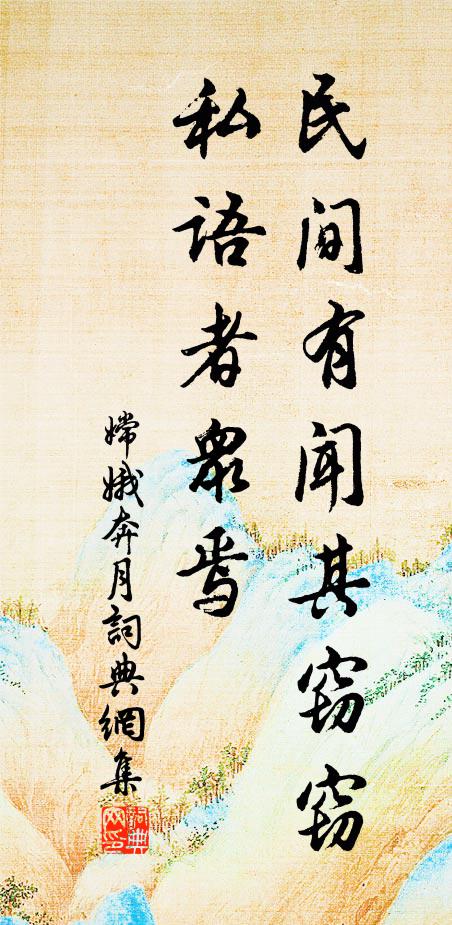 民间有闻其窃窃
私语者眾焉
嫦娥奔月詞典網集
詞典
网印